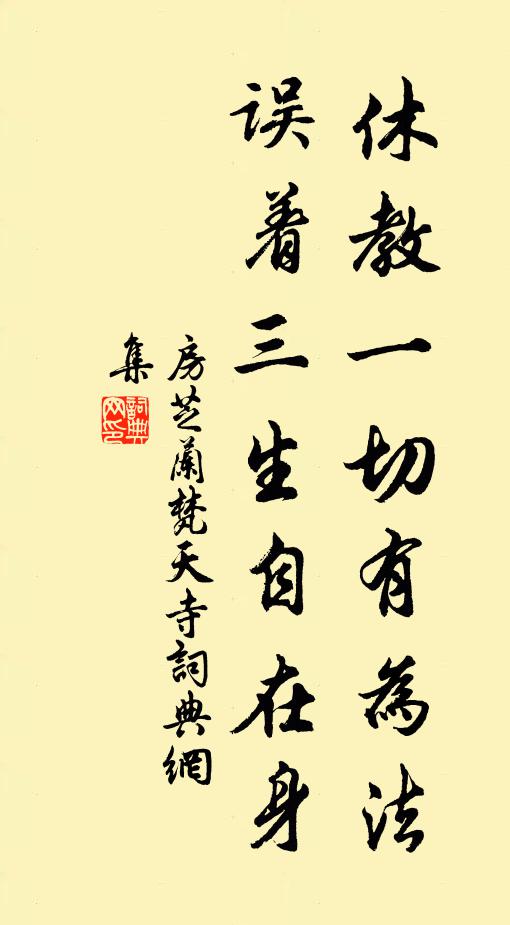 休教一切有為法
误着三生自在身
房芝蘭梵天寺詞典網
集
詞典
网印